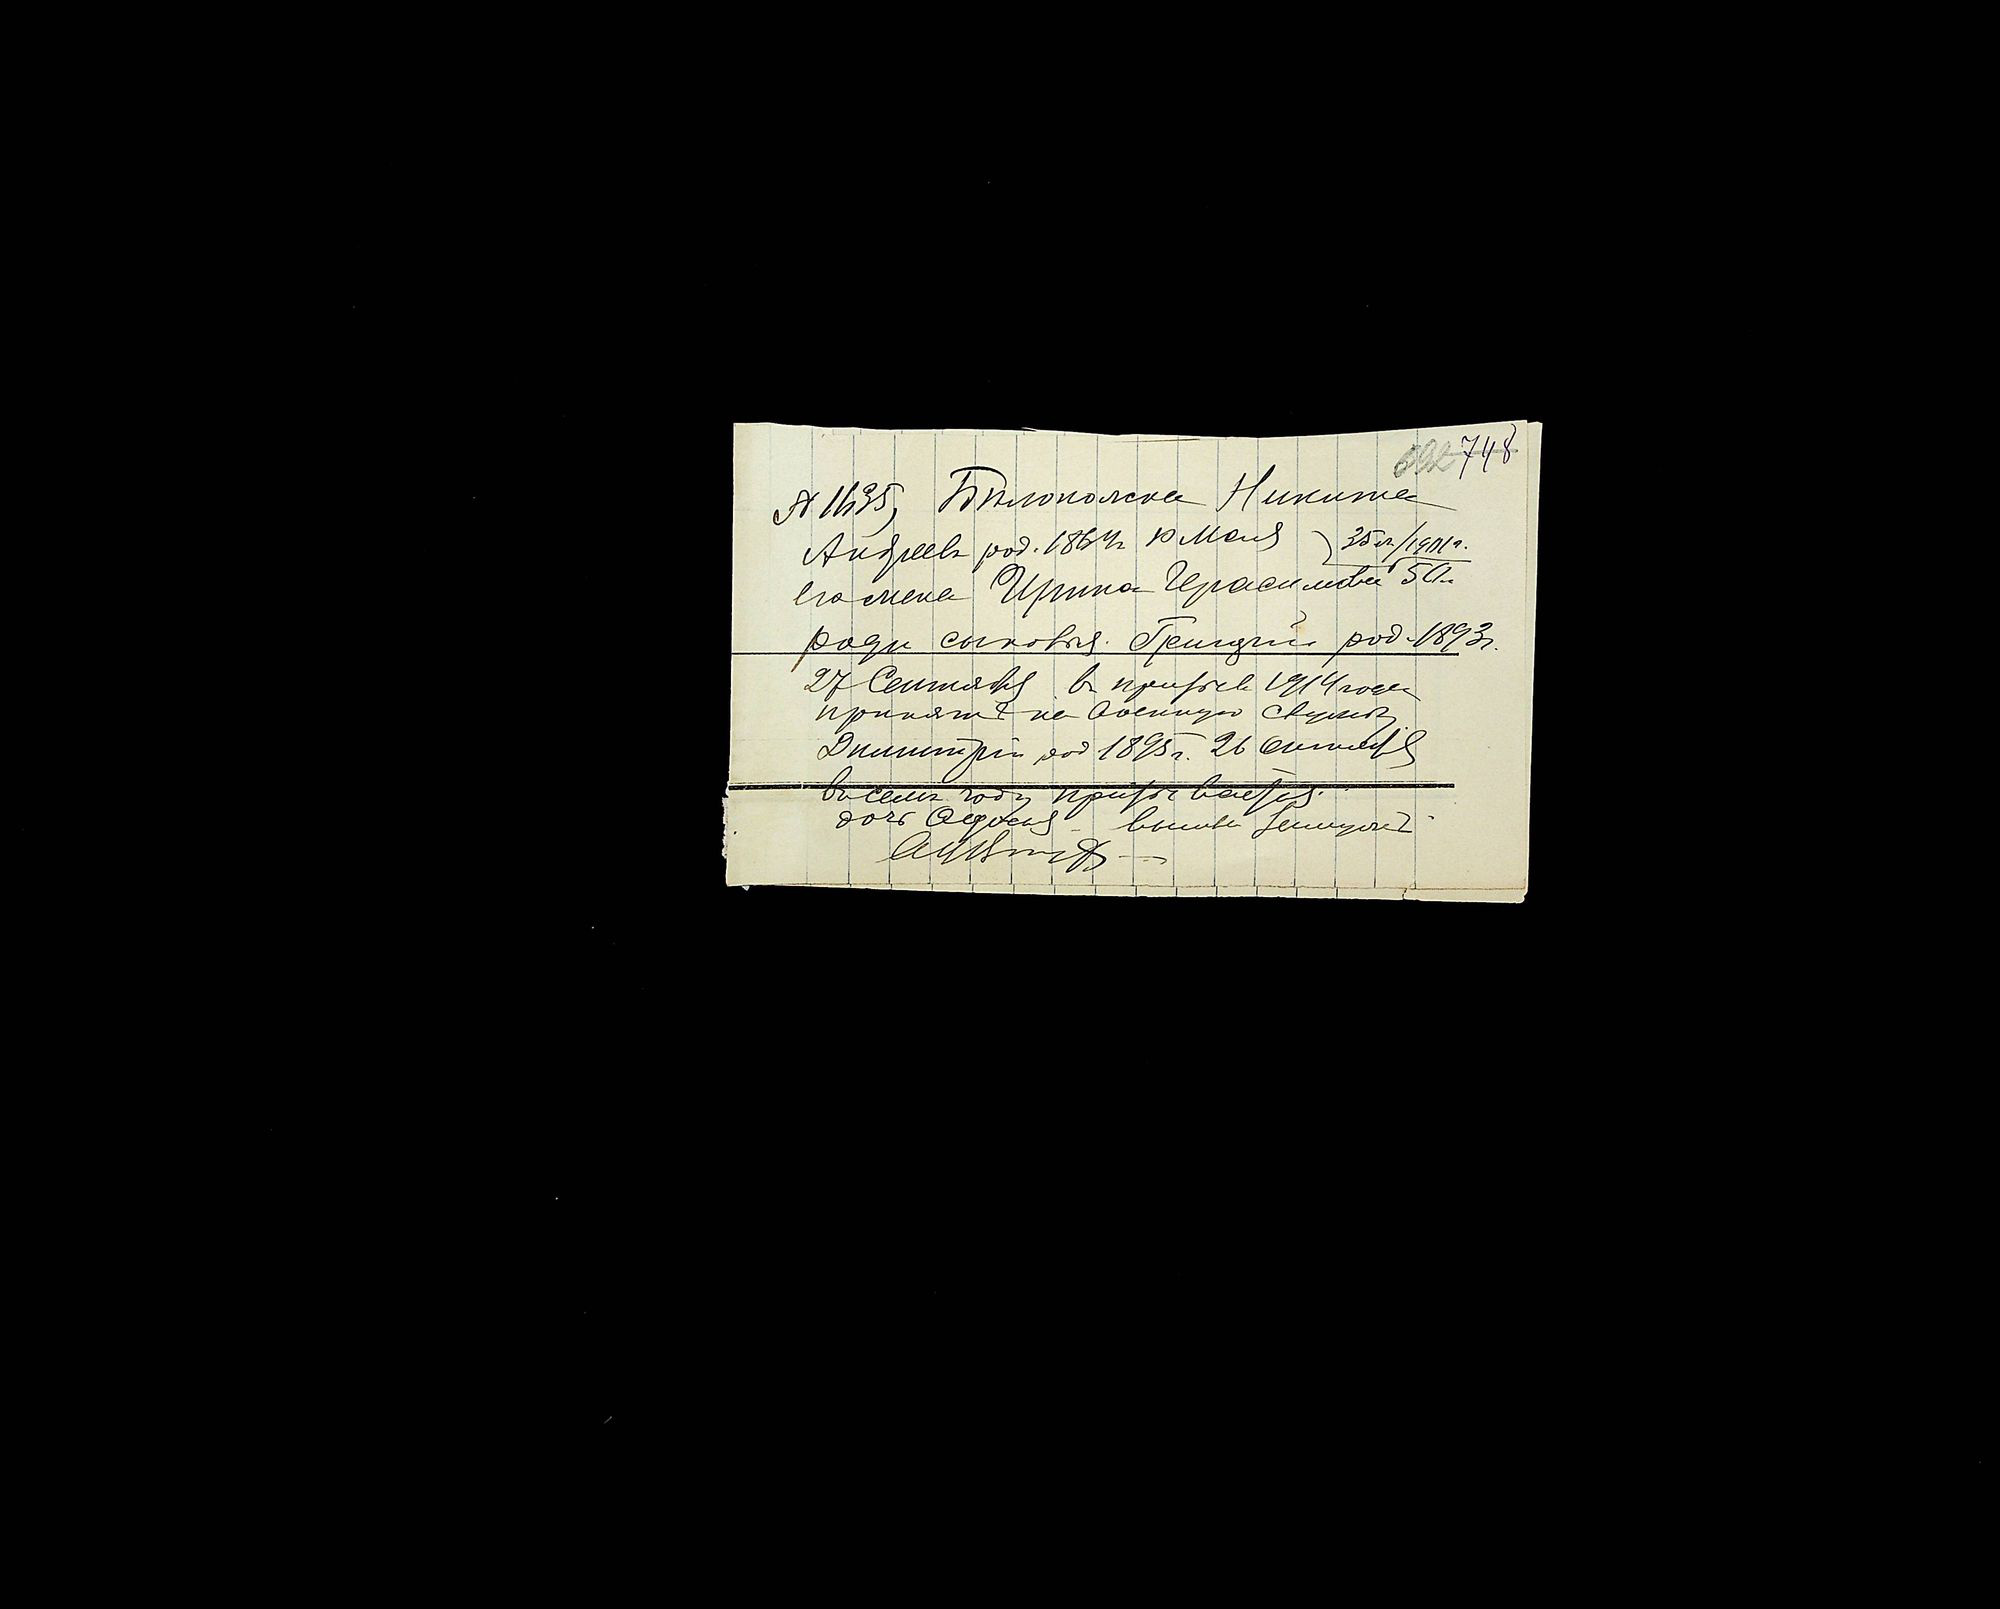 692 748
№ 1135, Бѣлополска Никита
Андреевъ род. 1864г. Мая 35 л./1911г.
его жена Ирина Герасимова 50л.
сыновья. Григорій род. 1893г.
27 Сентября въ призывъ 1914 года
принятъ на военную службу
Дмитрій род 1895г. 26 Октября
въ семъ году призывается.
дочь Федосія вышла замужъ